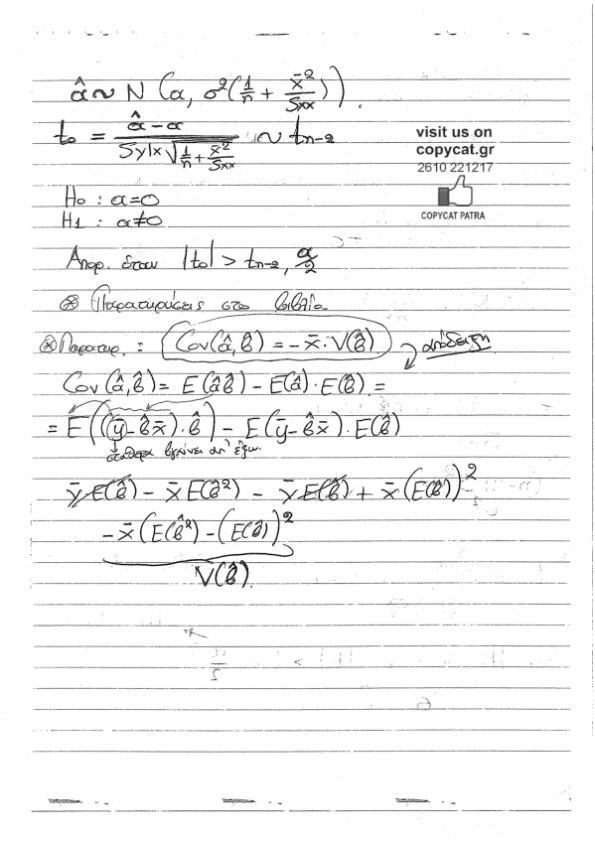 α̂ ~ N (α, σ²(1/n + x̄²/Sxx)).
t₀ = (α̂ - α)/(Sy|x √(1/n + x̄²/Sxx)) ~ tn-2
visit us on
copycat.gr
2610 221217
COPYCAT PATRA
H₀ : α=0
H₁ : α≠0
Απορ. όταν |t₀| > tn-2, α/2
⊛ Παρατηρήσεις στο βιβλίο.
⊛ Παρατηρ. : Cov(α̂,β̂) = -x̄ · V(β̂) απόδειξη
Cov(α̂,β̂) = E(α̂β̂) - E(α̂)·E(β̂) =
= E((ȳ - β̂x̄)·β̂) - E(ȳ - β̂x̄)·E(β̂)
σταθερα βγαίνει απ' έξω.
ȳE(β̂) - x̄E(β̂²) - ȳE(β̂) + x̄(E(β̂))²
-x̄(E(β̂²) - (E(β̂))²
V(β̂)